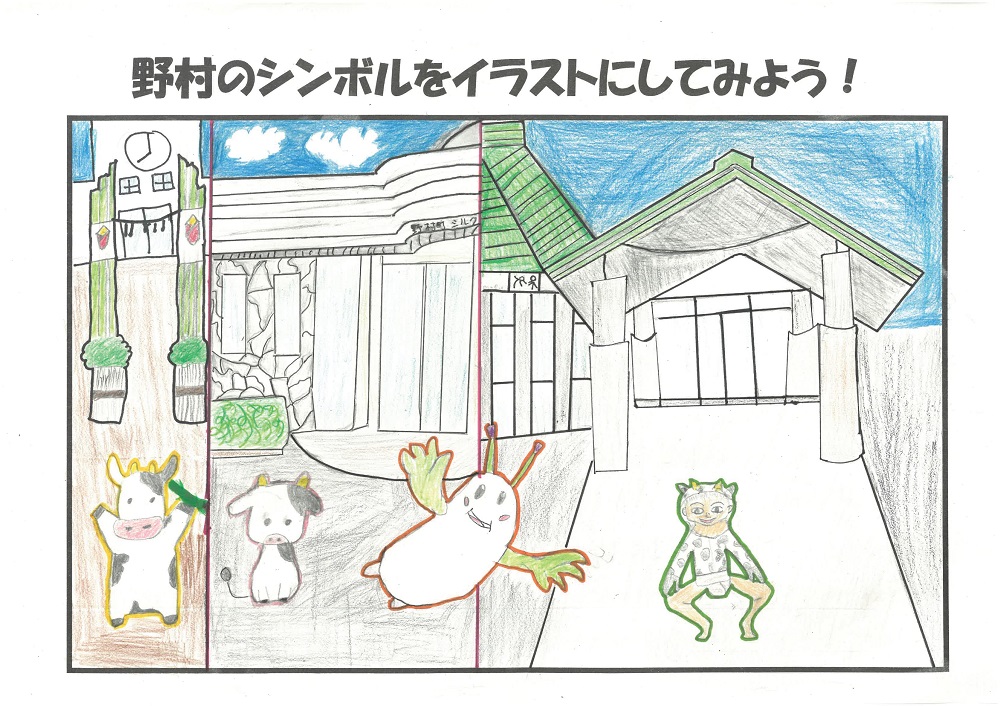 野村のシンボルをイラストにしてみよう！
野村町 シルク